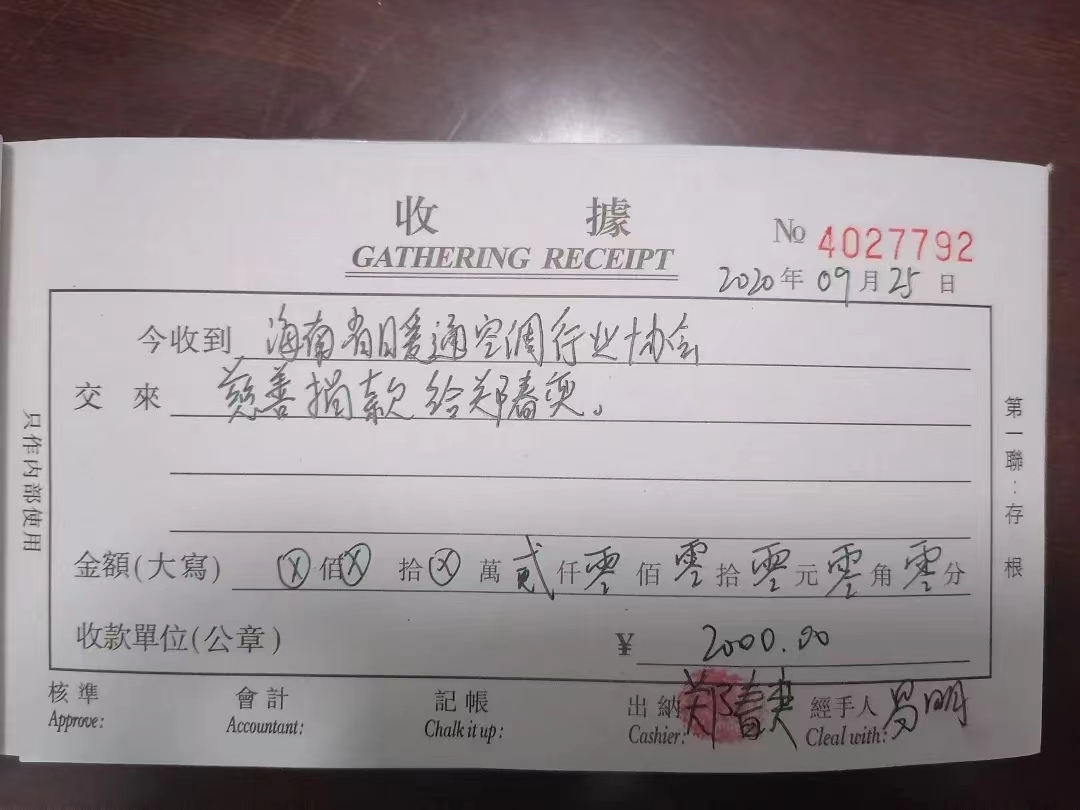 收 據
GATHERING RECEIPT
№ 4027792
2020年09月25日
今收到 海南省暖通空调行业协会
交 來 慈善捐款给郑春奥。
金額(大寫) ⓧ佰ⓧ拾ⓧ萬贰仟零佰零拾零元零角零分
收款單位(公章) ¥ 2000.00
核準 Approve:
會計 Accountant:
記帳 Chalk it up:
出納 Cashier: 郑春
經手人 Cleal with: 易明
只作内部使用
第一聯:存根